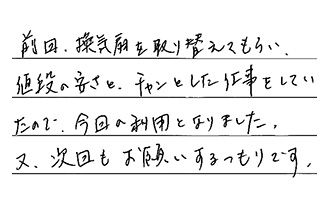 前回、換気扇を取り替えてもらい、
値段の安さと、チャンとした仕事をしてい
たので、今回の利用となりました。
又、次回もお願いするつもりです。